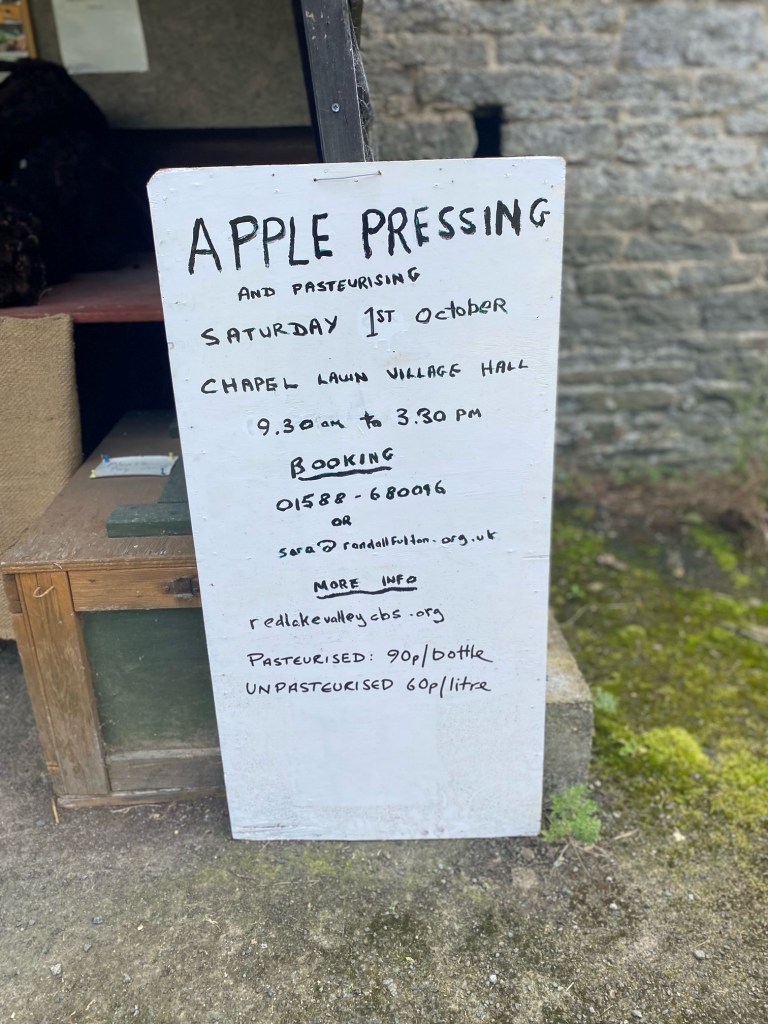 APPLE PRESSING
AND PASTEURISING
SATURDAY 1ST October
CHAPEL LAWN VILLAGE HALL
9.30 am to 3.30 PM
BOOKING
01588-680096
OR
sara@randallfulton.org.uk
MORE INFO
redlakevalleycbs.org
PASTEURISED: 90p/bottle
UNPASTEURISED 60p/litre